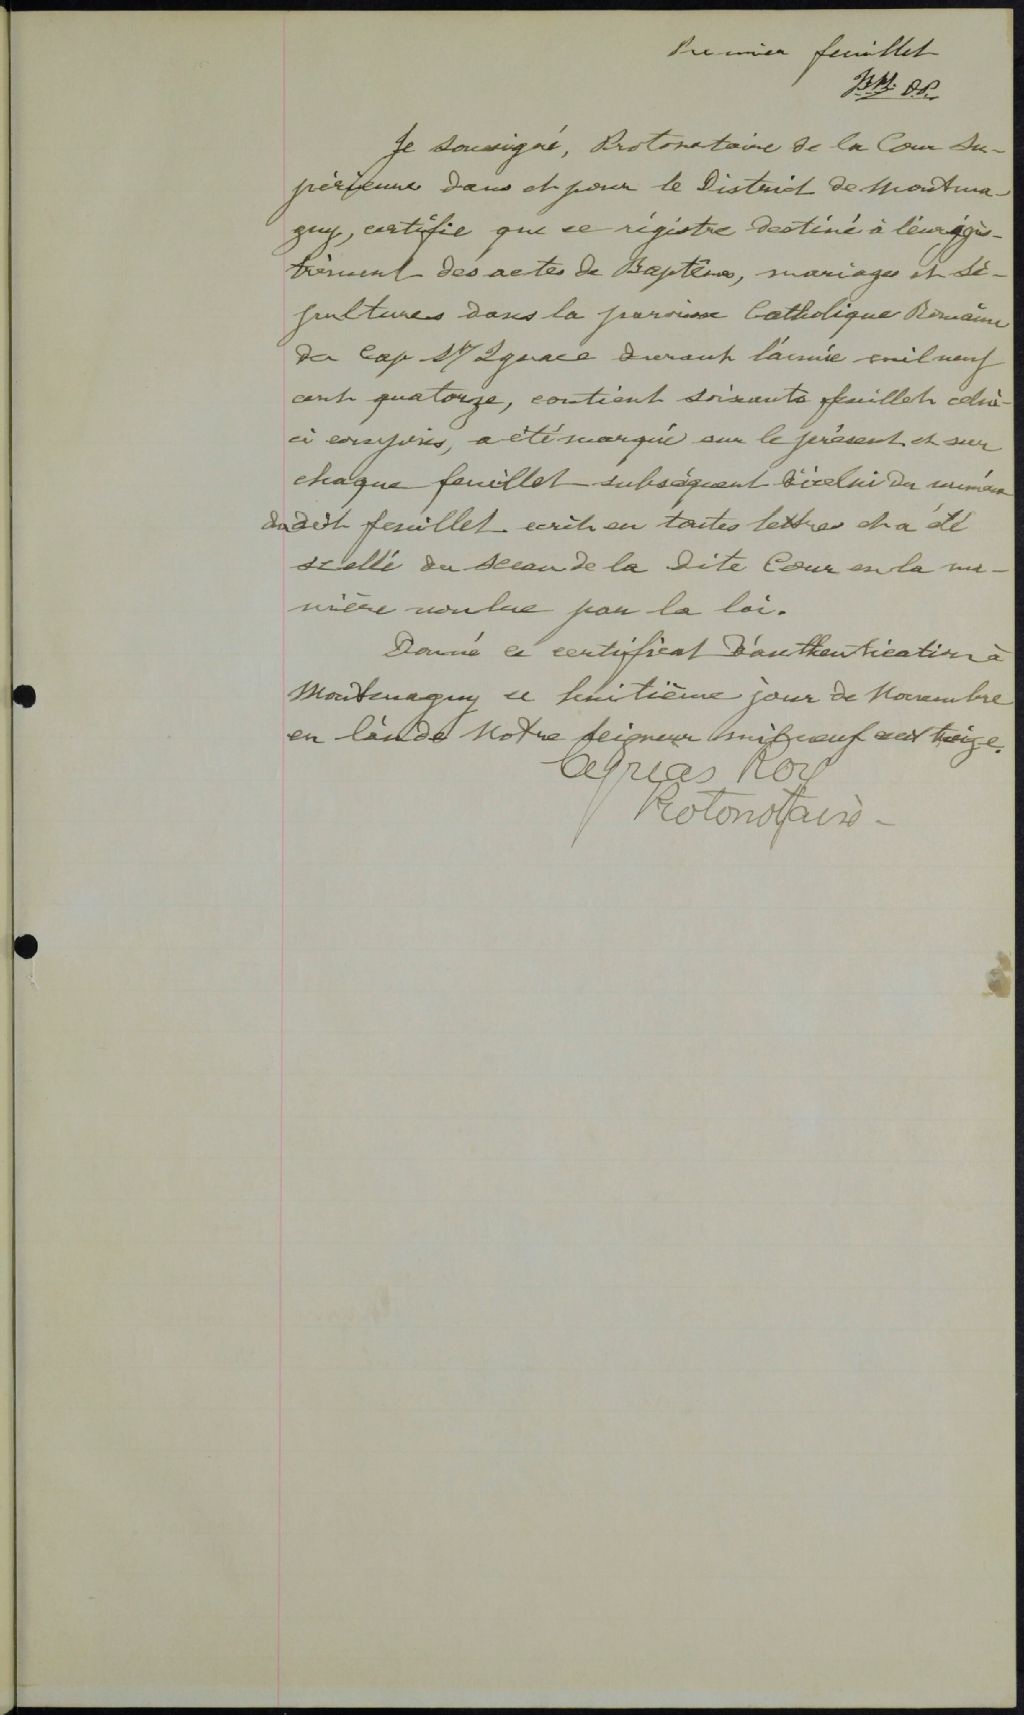 Premier feuillet
D.P.
Je soussigné, Protonotaire de la Cour Su-
périeure dans et pour le District de Montma-
gny, certifie que ce régistre destiné à l'enrégis-
trement des actes de Baptêmes, mariages et Sé-
pultures dans la paroisse Catholique Romaine
du Cap St Ignace durant l'année mil neuf
cent quatorze, contient soixante feuillets celui-
ci compris, a été marqué sur le présent et sur
chaque feuillet subséquent d'icelui du numéro
du dit feuillet écrit en toutes lettres et a été
scellé du sceau de la dite Cour en la ma-
nière voulue par la loi.
Donné ce certificat d'authentication à
Montmagny ce huitième jour de Novembre
en l'an de Notre Seigneur mil neuf cent treize.
Roy
Protonotaire -